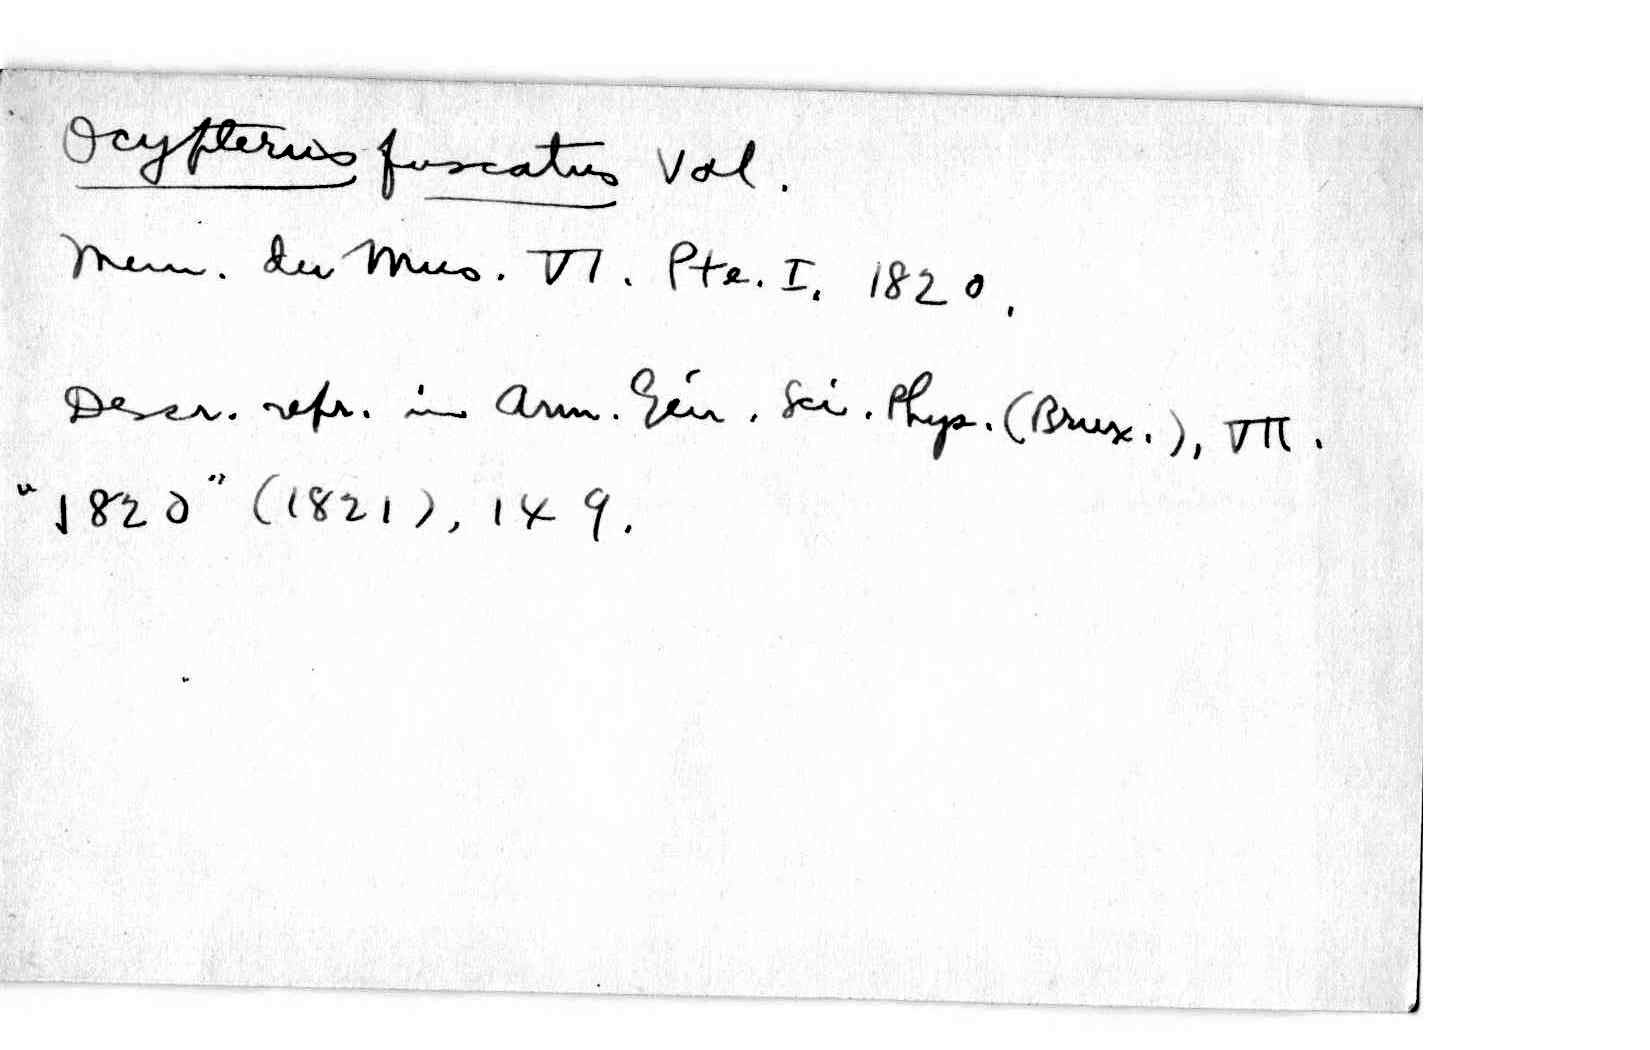 Ocypterus fuscatus Val.
Mem. du Mus. VI. Pte. I. 1820.
Descr. repr. in Ann. Gén. Sci. Phys. (Brux.), VII.
"1820" (1821), 149.